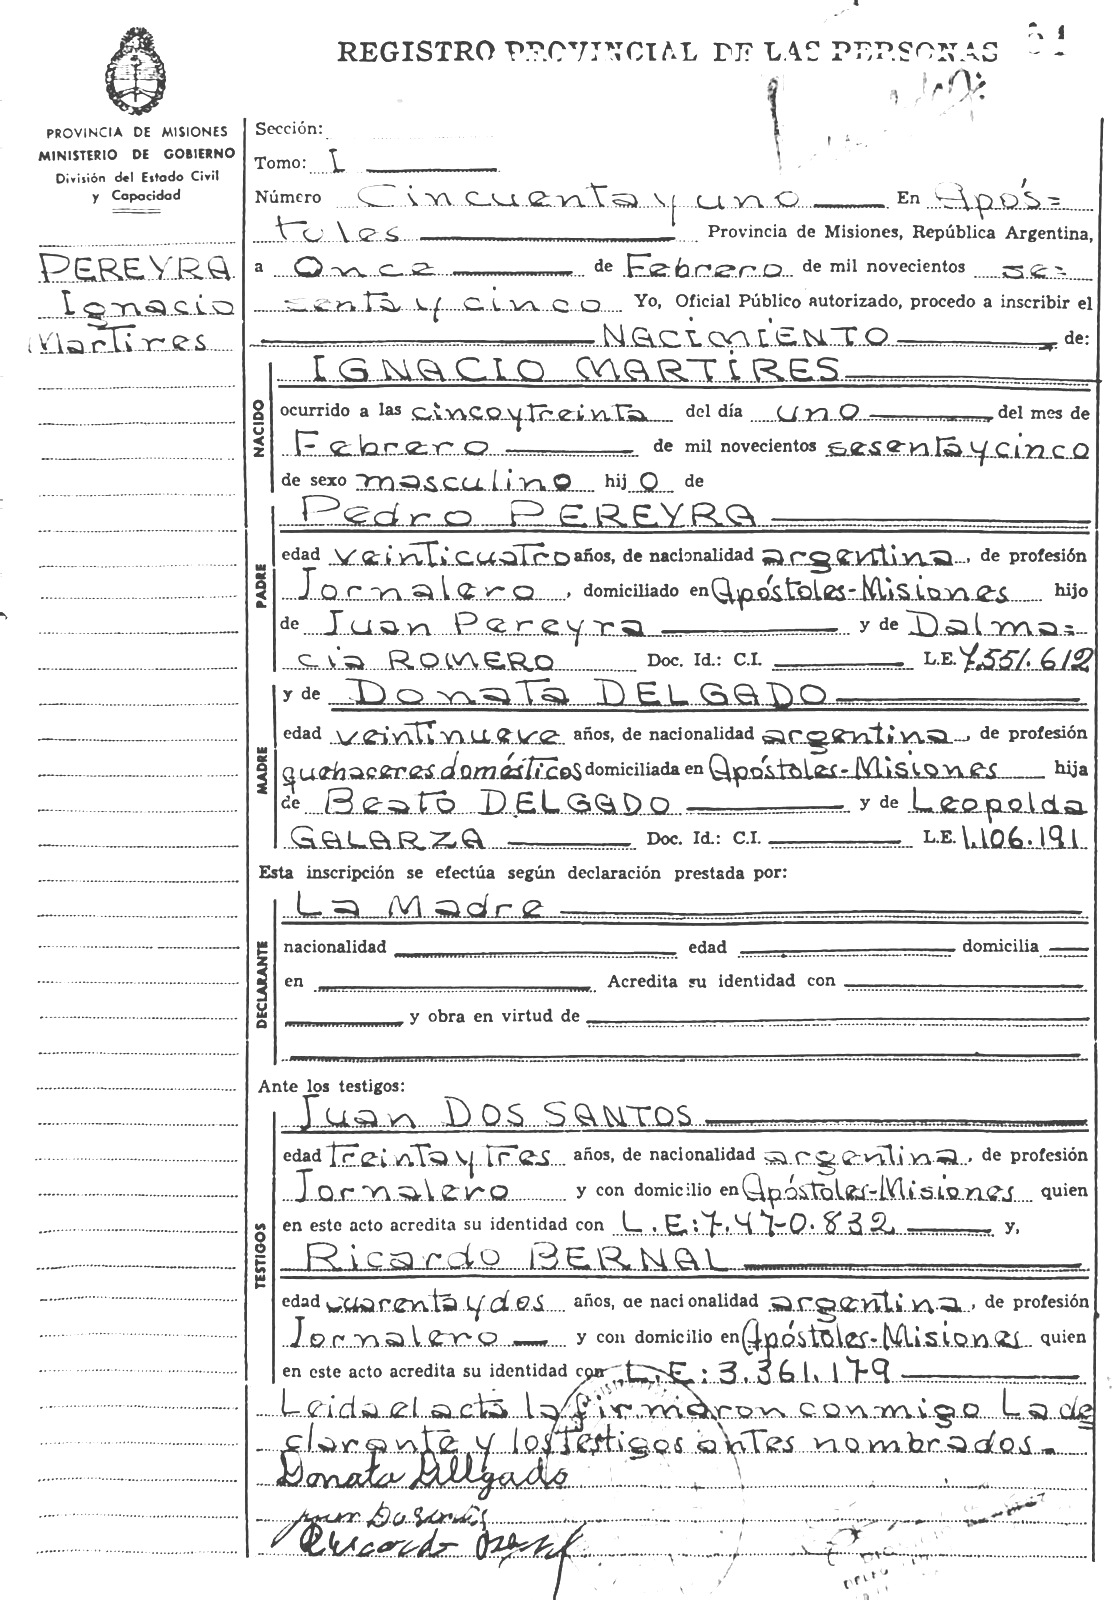 REGISTRO PROVINCIAL DE LAS PERSONAS
PROVINCIA DE MISIONES
MINISTERIO DE GOBIERNO
División del Estado Civil
y Capacidad
PEREYRA
Ignacio
Martires
Sección:
Tomo: I
Número Cincuenta y uno En Após=
toles Provincia de Misiones, República Argentina,
a Once de Febrero de mil novecientos se=
senta y cinco Yo, Oficial Público autorizado, procedo a inscribir el
NACIMIENTO de:
NACIDO
IGNACIO MARTIRES
ocurrido a las cinco y treinta del día uno del mes de
Febrero de mil novecientos sesenta y cinco
de sexo masculino hijo de
PADRE
Pedro PEREYRA
edad veinticuatro años, de nacionalidad argentina, de profesión
Jornalero, domiciliado en Apóstoles-Misiones hijo
de Juan Pereyra y de Dalma=
cia ROMERO Doc. Id.: C.I. L.E. 7.551.612
MADRE
y de Donata DELGADO
edad veintinueve años, de nacionalidad argentina, de profesión
quehaceres domésticos domiciliada en Apóstoles-Misiones hija
de Beato DELGADO y de Leopolda
GALARZA Doc. Id.: C.I. L.E. 1.106.191
Esta inscripción se efectúa según declaración prestada por:
DECLARANTE
La Madre
nacionalidad edad domicilia
en Acredita su identidad con
y obra en virtud de
Ante los testigos:
TESTIGOS
Juan DOS SANTOS
edad treinta y tres años, de nacionalidad argentina, de profesión
Jornalero y con domicilio en Apóstoles-Misiones quien
en este acto acredita su identidad con L.E:7.470.832 y,
Ricardo BERNAL
edad cuarenta y dos años, de nacionalidad argentina, de profesión
Jornalero y con domicilio en Apóstoles-Misiones quien
en este acto acredita su identidad con L.E: 3.361.179
Leida el acta la firmaron conmigo La de
clarante y los testigos antes nombrados.
Donata Dellgado